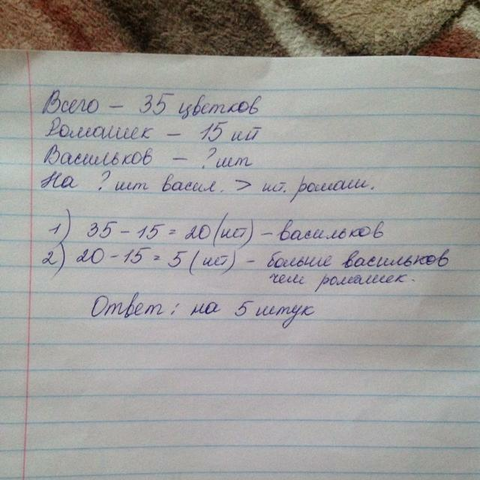 Всего – 35 цветков
Ромашек – 15 шт
Васильков – ? шт
На ? шт васил. > шт. ромаш.
1) 35 – 15 = 20 (шт) – васильков
2) 20 – 15 = 5 (шт) – больше васильков
чем ромашек.
Ответ: на 5 штук